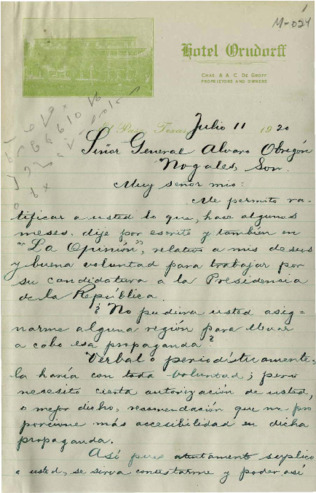 M-024
Hotel Orndorff
CHAS. & A. C. DE GROFF
PROPRIETORS AND OWNERS
El Paso, Texas Julio 11 1920
Señor General Alvaro Obregón
Nogales, Son.
Muy señor mio:
Me permito ra-
tificar a usted lo que, hace algunos
meses, dije por escrito y tambien en
"La Opinión", relativo a mis deseos
y buena voluntad para trabajar por
su candidatura a la Presidencia
de la República.
¿No pudiera usted asig-
narme alguna región para llevar
a cabo esa propaganda?
Verbal o periodísticamente,
la haría con toda voluntad; pero
necesito cierta autorización de usted,
o mejor dicho, recomendación que me pro
porcione más accesibilidad en dicha
propaganda.
Así pues atentamente suplico
a usted, se sirva contestarme y poder así